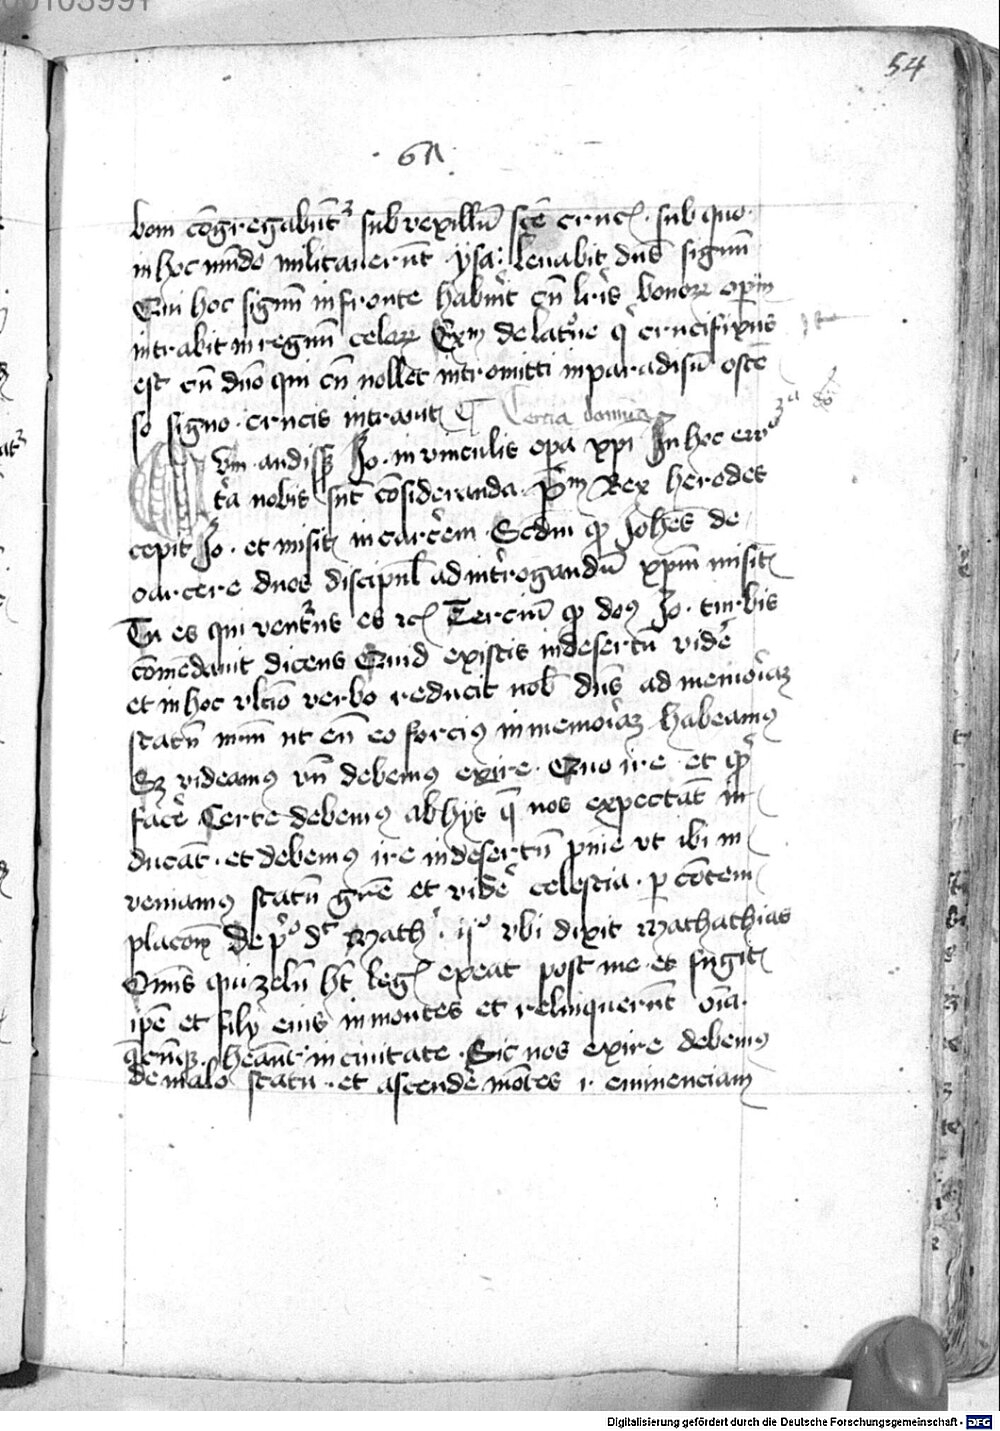 54
bom cōgregabūt᷑ sub vexillū scē cruc̄. sub quo.
in hoc mūdo militauerūt. ysa: leuabit dn̄s signū
Qui hoc signū in fronte habūit cū lr̄is bonoꝝ opūm
intrabit in regnū celoꝝ Exm̄ de latrōe q̇ crucifixus
est cū dn̄o qui cū nollet intromitti in paradisū ostē
so signo. crucis intrauit Tercia domīca
Cum audiss; Jo. in vinculis opa xpi In hoc ewᵒ
tͥa nobis sūt cōsideranda. pͥm̄ Rex herodes
cepit Jo. et misit in carcēem. Scdm̄ qꝫ Johēs de
carcere duos discipul̄ ad int̓rogandū xpm̄ misit
Tu es qui ventᷣus es ⁊c̄ Terciū qꝫ dn̄s Jo. turbis
cōmēdauit dicens Quid existis in desertū vidē
et in hoc vltīo verbo reducit nob̄ dn̄s ad memoͥaꝫ
statū nr̄m̄ ut eū eo forciꝰ in memoͥaꝫ habeamꝰ
Sꝫ videamꝰ vn̄ debemꝰ exire. Quo ire. et qͥd
facē Certe debemꝰ ab hys q̄ nos expectāt in
ducāt. et debemꝰ ire in desertū pn̄ie vt ibi in
veniamꝰ statū grē et vidē celestia. ꝑ cōtem
placoēꝫ De pͥᵒ dͭ Math̓. ijᵒ vbi dixit Mathathias
Om̄s qui zelū hn̄t leḡ exeat post me et fugit
ipē et fily eius in montes et relinquerūt oīa.
q̄cūqꝫ. heāūt in ciuitate. Sic nos exire debemꝰ
de malo statu. et ascendē mōtes .i. eminenciam
Digitalisierung gefördert durch die Deutsche Forschungsgemeinschaft - DFG